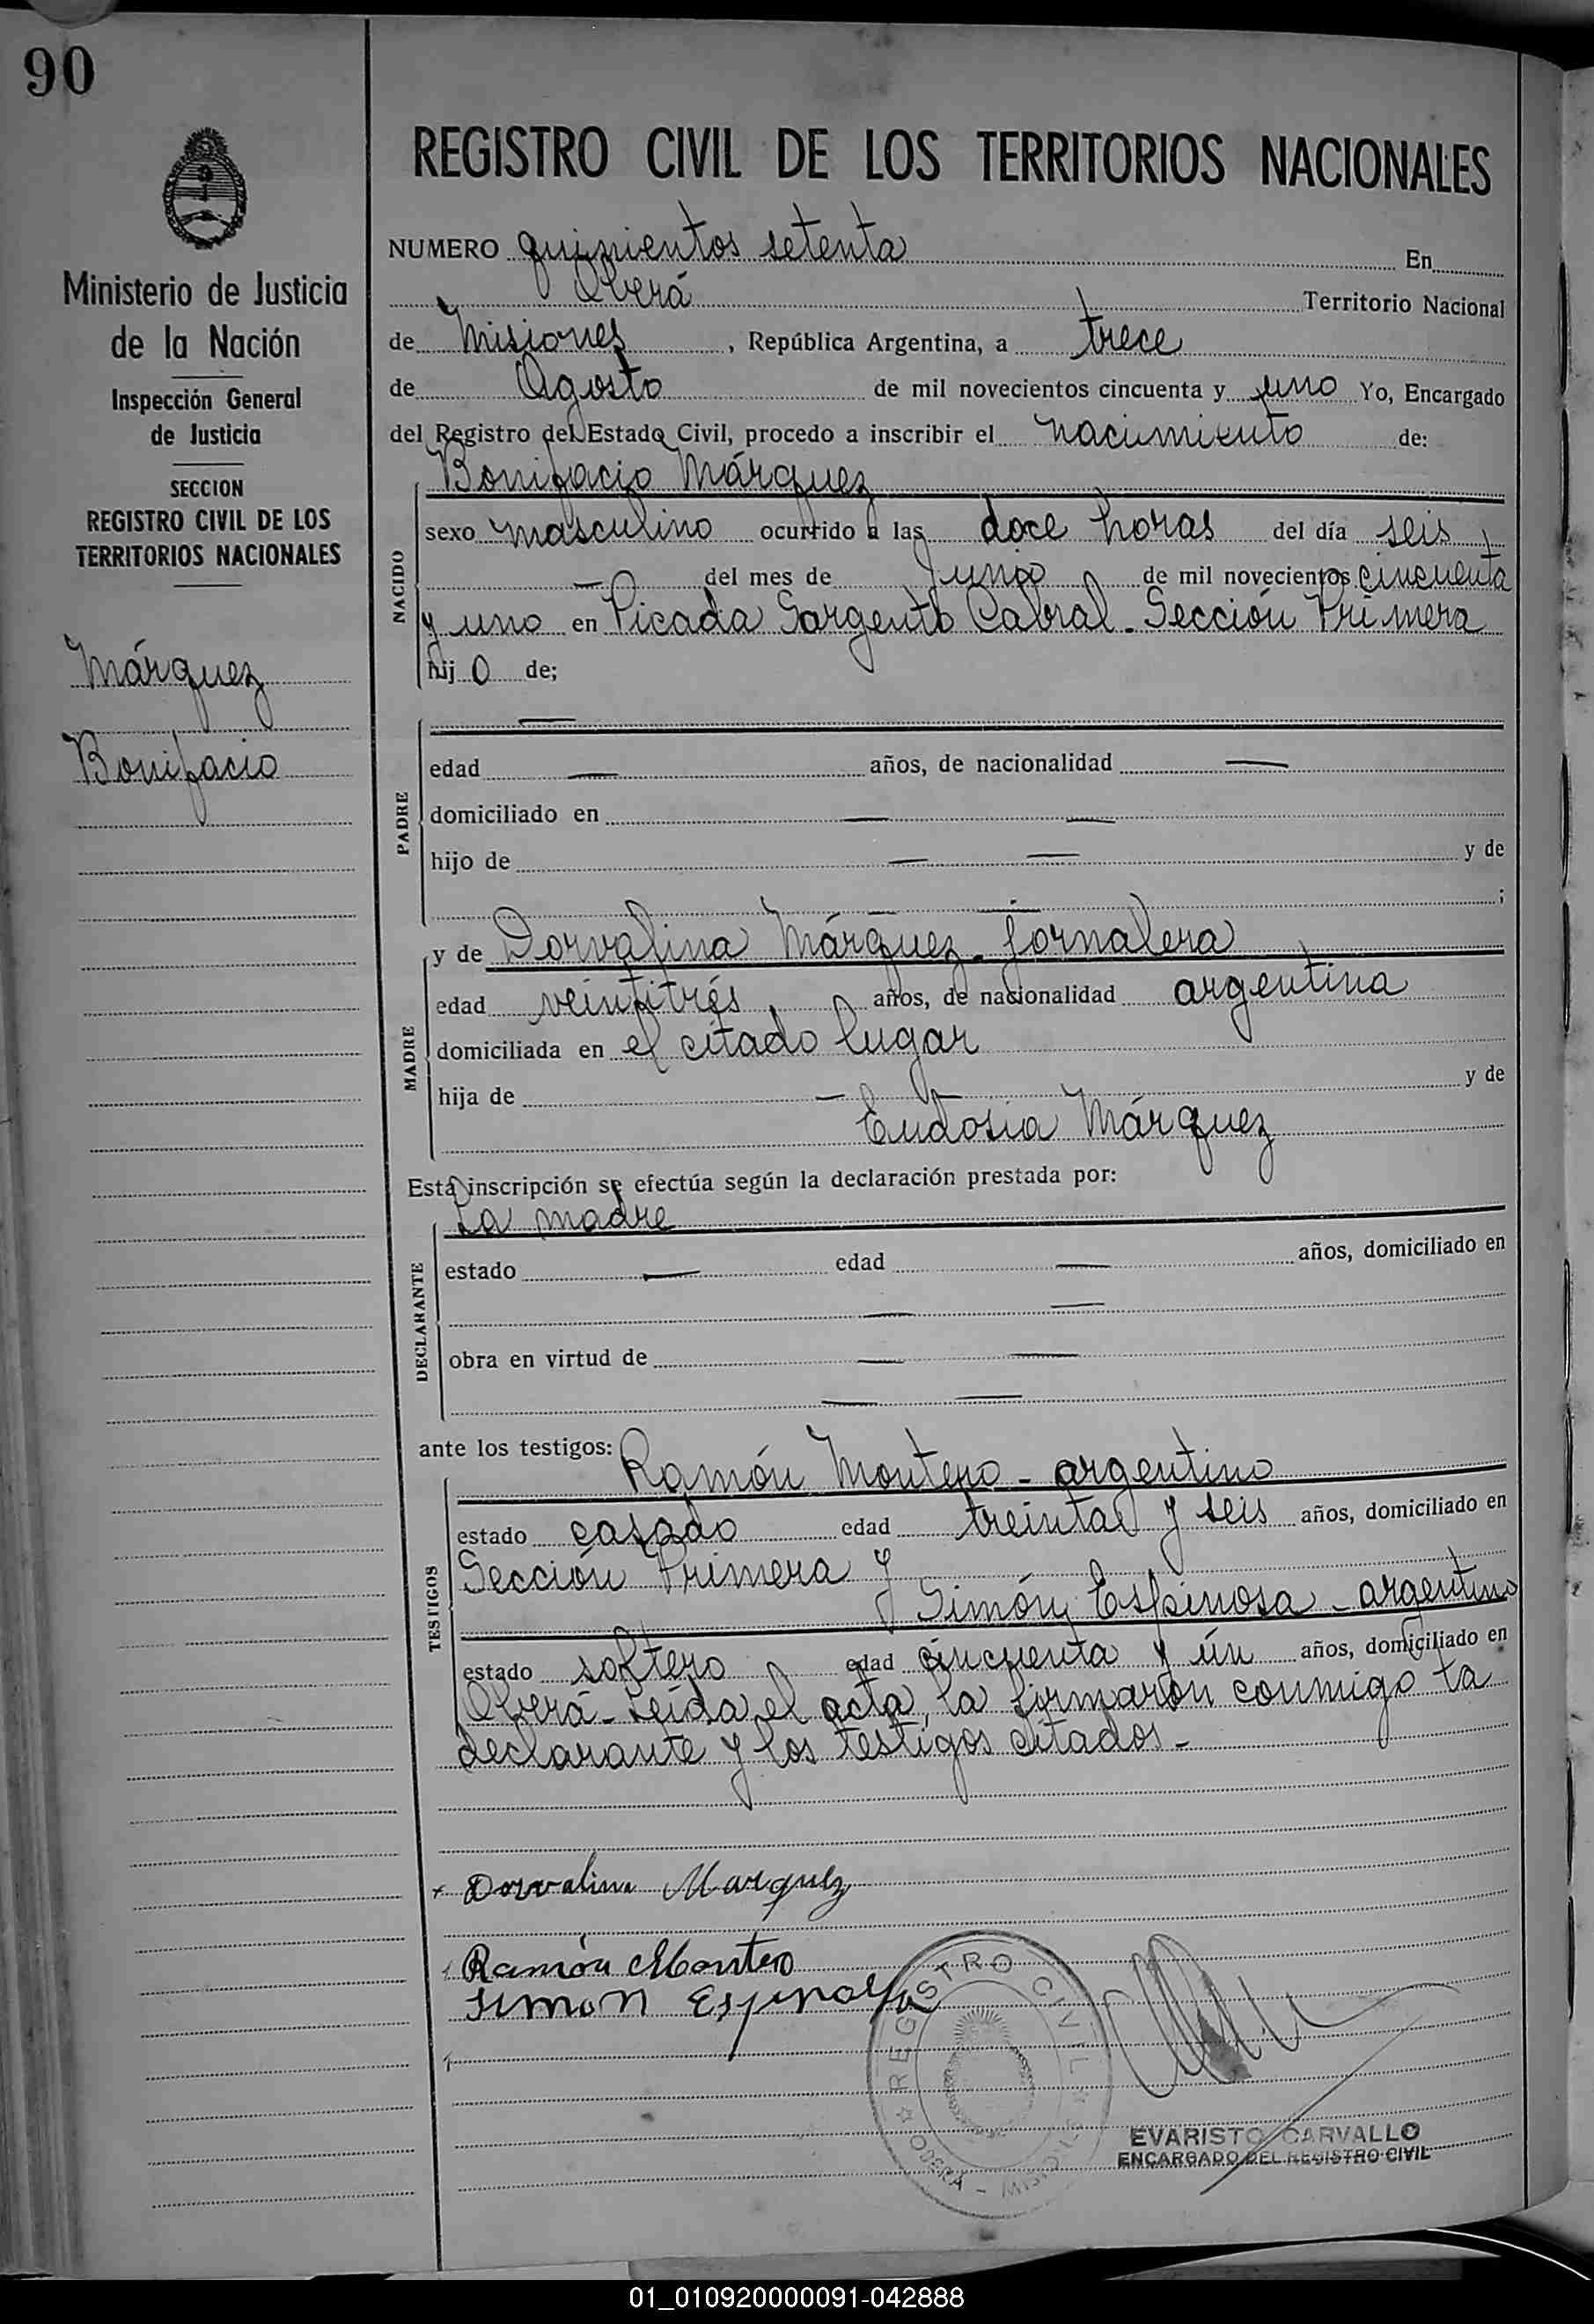 90
Ministerio de Justicia
de la Nación
Inspección General
de Justicia
SECCION
REGISTRO CIVIL DE LOS
TERRITORIOS NACIONALES
Márquez
Bonifacio
REGISTRO CIVIL DE LOS TERRITORIOS NACIONALES
NUMERO quinientos setenta En
Oberá Territorio Nacional
de Misiones, República Argentina, a trece
de Agosto de mil novecientos cincuenta y uno Yo, Encargado
del Registro del Estado Civil, procedo a inscribir el nacimiento de:
Bonifacio Márquez
NACIDO
sexo masculino ocurrido a las doce horas del día seis
— del mes de Junio de mil novecientos cincuenta
y uno en Picada Sargento Cabral. Sección Primera
hijo de;
—
PADRE
edad — años, de nacionalidad —
domiciliado en — —
hijo de — — y de
— — ;
MADRE
y de Dorvalina Márquez - jornalera
edad veintitrés años, de nacionalidad argentina
domiciliada en el citado lugar
hija de — — y de
Eudosia Márquez
Esta inscripción se efectúa según la declaración prestada por:
La madre
DECLARANTE
estado — edad — años, domiciliado en
— —
obra en virtud de — —
— —
ante los testigos: Ramón Montero - argentino
TESTIGOS
estado casado edad treinta y seis años, domiciliado en
Sección Primera y
Simón Espinosa - argentino
estado soltero edad cincuenta y ún años, domiciliado en
Oberá - Leída el acta, la firmaron conmigo la
declarante y los testigos citados -
Dorvalina Marquez
Ramón Montero
Simon Espinosa
REGISTRO CIVIL
OBERA - MISIONES
EVARISTO CARVALLO
ENCARGADO DEL REGISTRO CIVIL
01_010920000091-042888